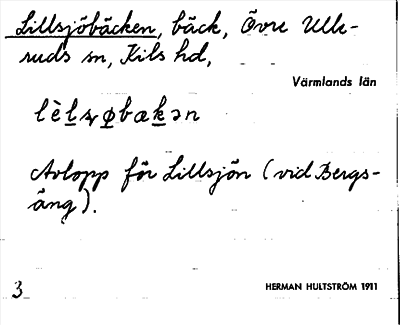 Lillsjöbäcken, bäck, Övre Ulle-
ruds sn, Kils hd,
Värmlands län
Avlopp för Lillsjön (vid Bergs-
äng).
3
HERMAN HULTSTRÖM 1911